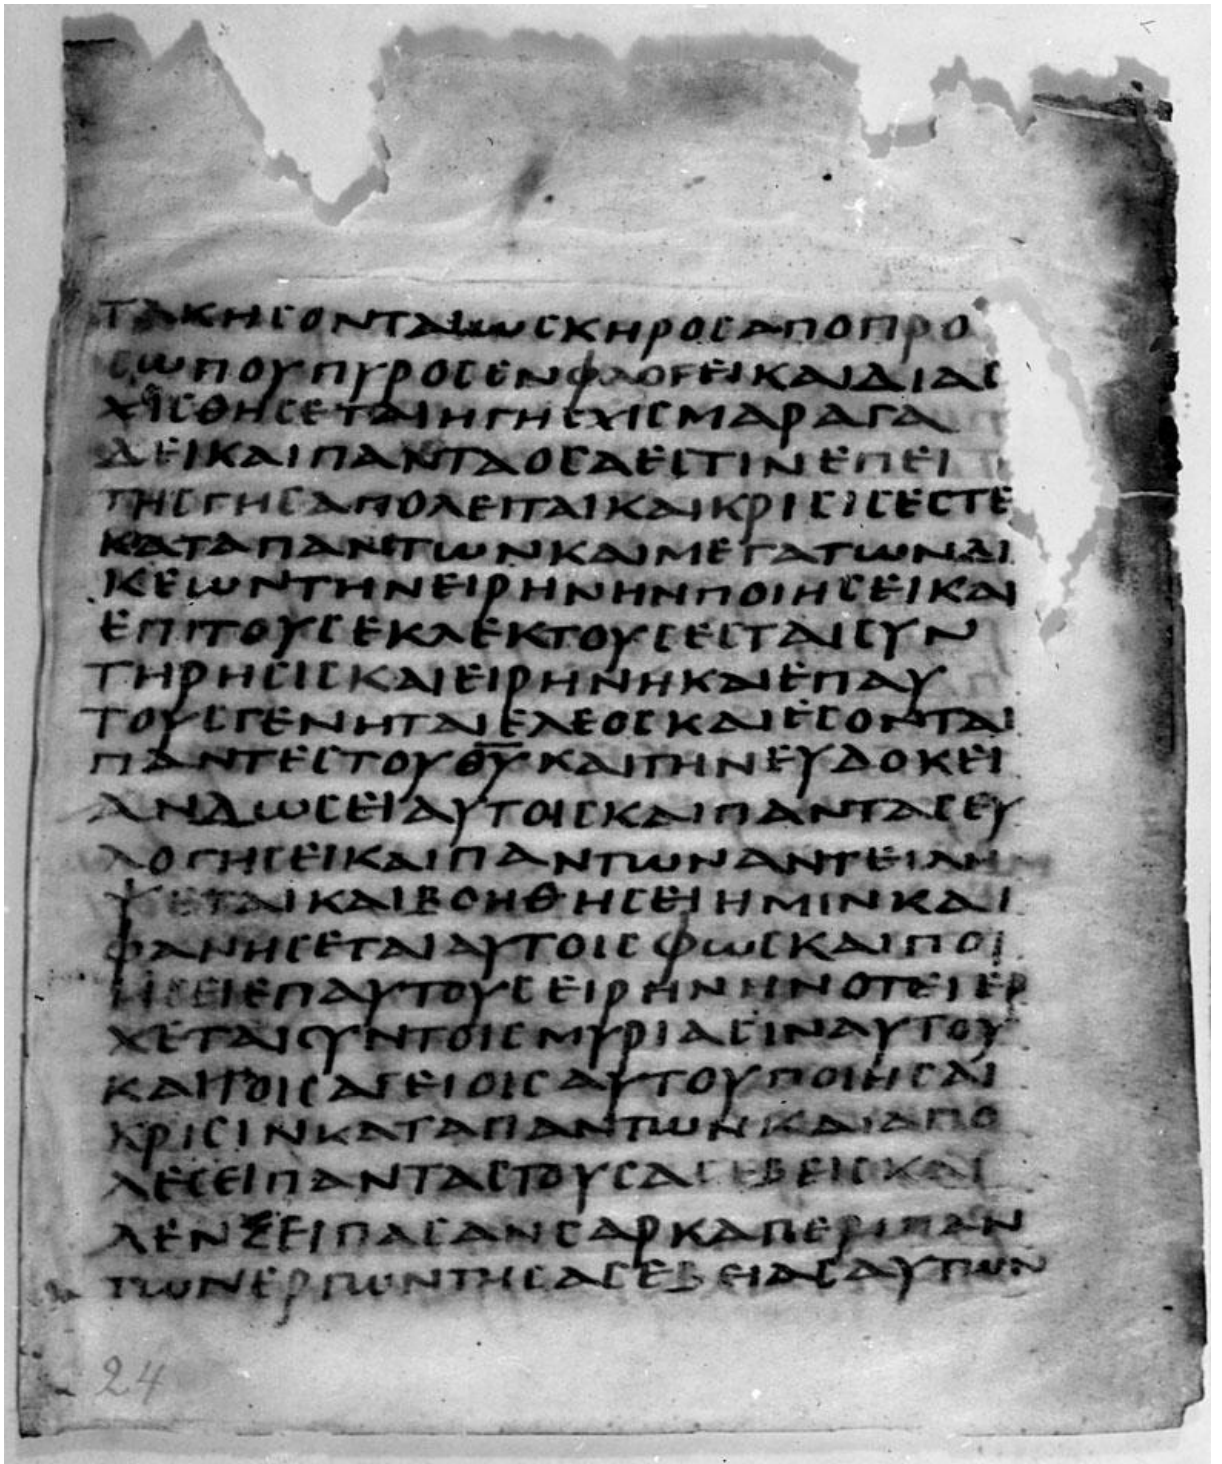 ΤΑΚΗϹΟΝΤΑΙΩϹΚΗΡΟϹΑΠΟΠΡΟ
ϹΩΠΟΥΠΥΡΟϹΕΝΦΛΟΓΕΙΚΑΙΔΙΑϹ
ΧΙϹΘΗϹΕΤΑΙΗΓΗϹΧΙϹΜΑΡΑΓΑ
ΔΕΙΚΑΙΠΑΝΤΑΟϹΑΕϹΤΙΝΕΠΕΙ
ΤΗϹΓΗϹΑΠΟΛΕΙΤΑΙΚΑΙΚΡΙϹΙϹΕϹΤΕ
ΚΑΤΑΠΑΝΤΩΝΚΑΙΜΕΤΑΤΩΝΔΙ
ΚΕΩΝΤΗΝΕΙΡΗΝΗΝΠΟΙΗϹΕΙΚΑΙ
ΕΠΙΤΟΥϹΕΚΛΕΚΤΟΥϹΕϹΤΑΙϹΥΝ
ΤΗΡΗϹΙϹΚΑΙΕΙΡΗΝΗΚΑΙΕΠΑΥ
ΤΟΥϹΓΕΝΗΤΑΙΕΛΕΟϹΚΑΙΕϹΟΝΤΑΙ
ΠΑΝΤΕϹΤΟΥΘ̅Υ̅ΚΑΙΤΗΝΕΥΔΟΚΕΙ
ΑΝΔΩϹΕΙΑΥΤΟΙϹΚΑΙΠΑΝΤΑϹΕΥ
ΛΟΓΗϹΕΙΚΑΙΠΑΝΤΩΝΑΝΤΕΙΛΗΜ
ΨΕΤΑΙΚΑΙΒΟΗΘΗϹΕΙΗΜΙΝΚΑΙ
ΦΑΝΗϹΕΤΑΙΑΥΤΟΙϹΦΩϹΚΑΙΠΟΙ
ΗϹΕΙΕΠΑΥΤΟΥϹΕΙΡΗΝΗΝΟΤΕΙΕΡ
ΧΕΤΑΙϹΥΝΤΟΙϹΜΥΡΙΑϹΙΝΑΥΤΟΥ
ΚΑΙΤΟΙϹΑΓΕΙΟΙϹΑΥΤΟΥΠΟΙΗϹΑΙ
ΚΡΙϹΙΝΚΑΤΑΠΑΝΤΩΝΚΑΙΑΠΟ
ΛΕϹΕΙΠΑΝΤΑϹΤΟΥϹΑϹΕΒΕΙϹΚΑΙ
ΛΕΝΞΕΙΠΑϹΑΝϹΑΡΚΑΠΕΡΙΠΑΝ
ΤΩΝΕΡΓΩΝΤΗϹΑϹΕΒΕΙΑϹΑΥΤΩΝ
24